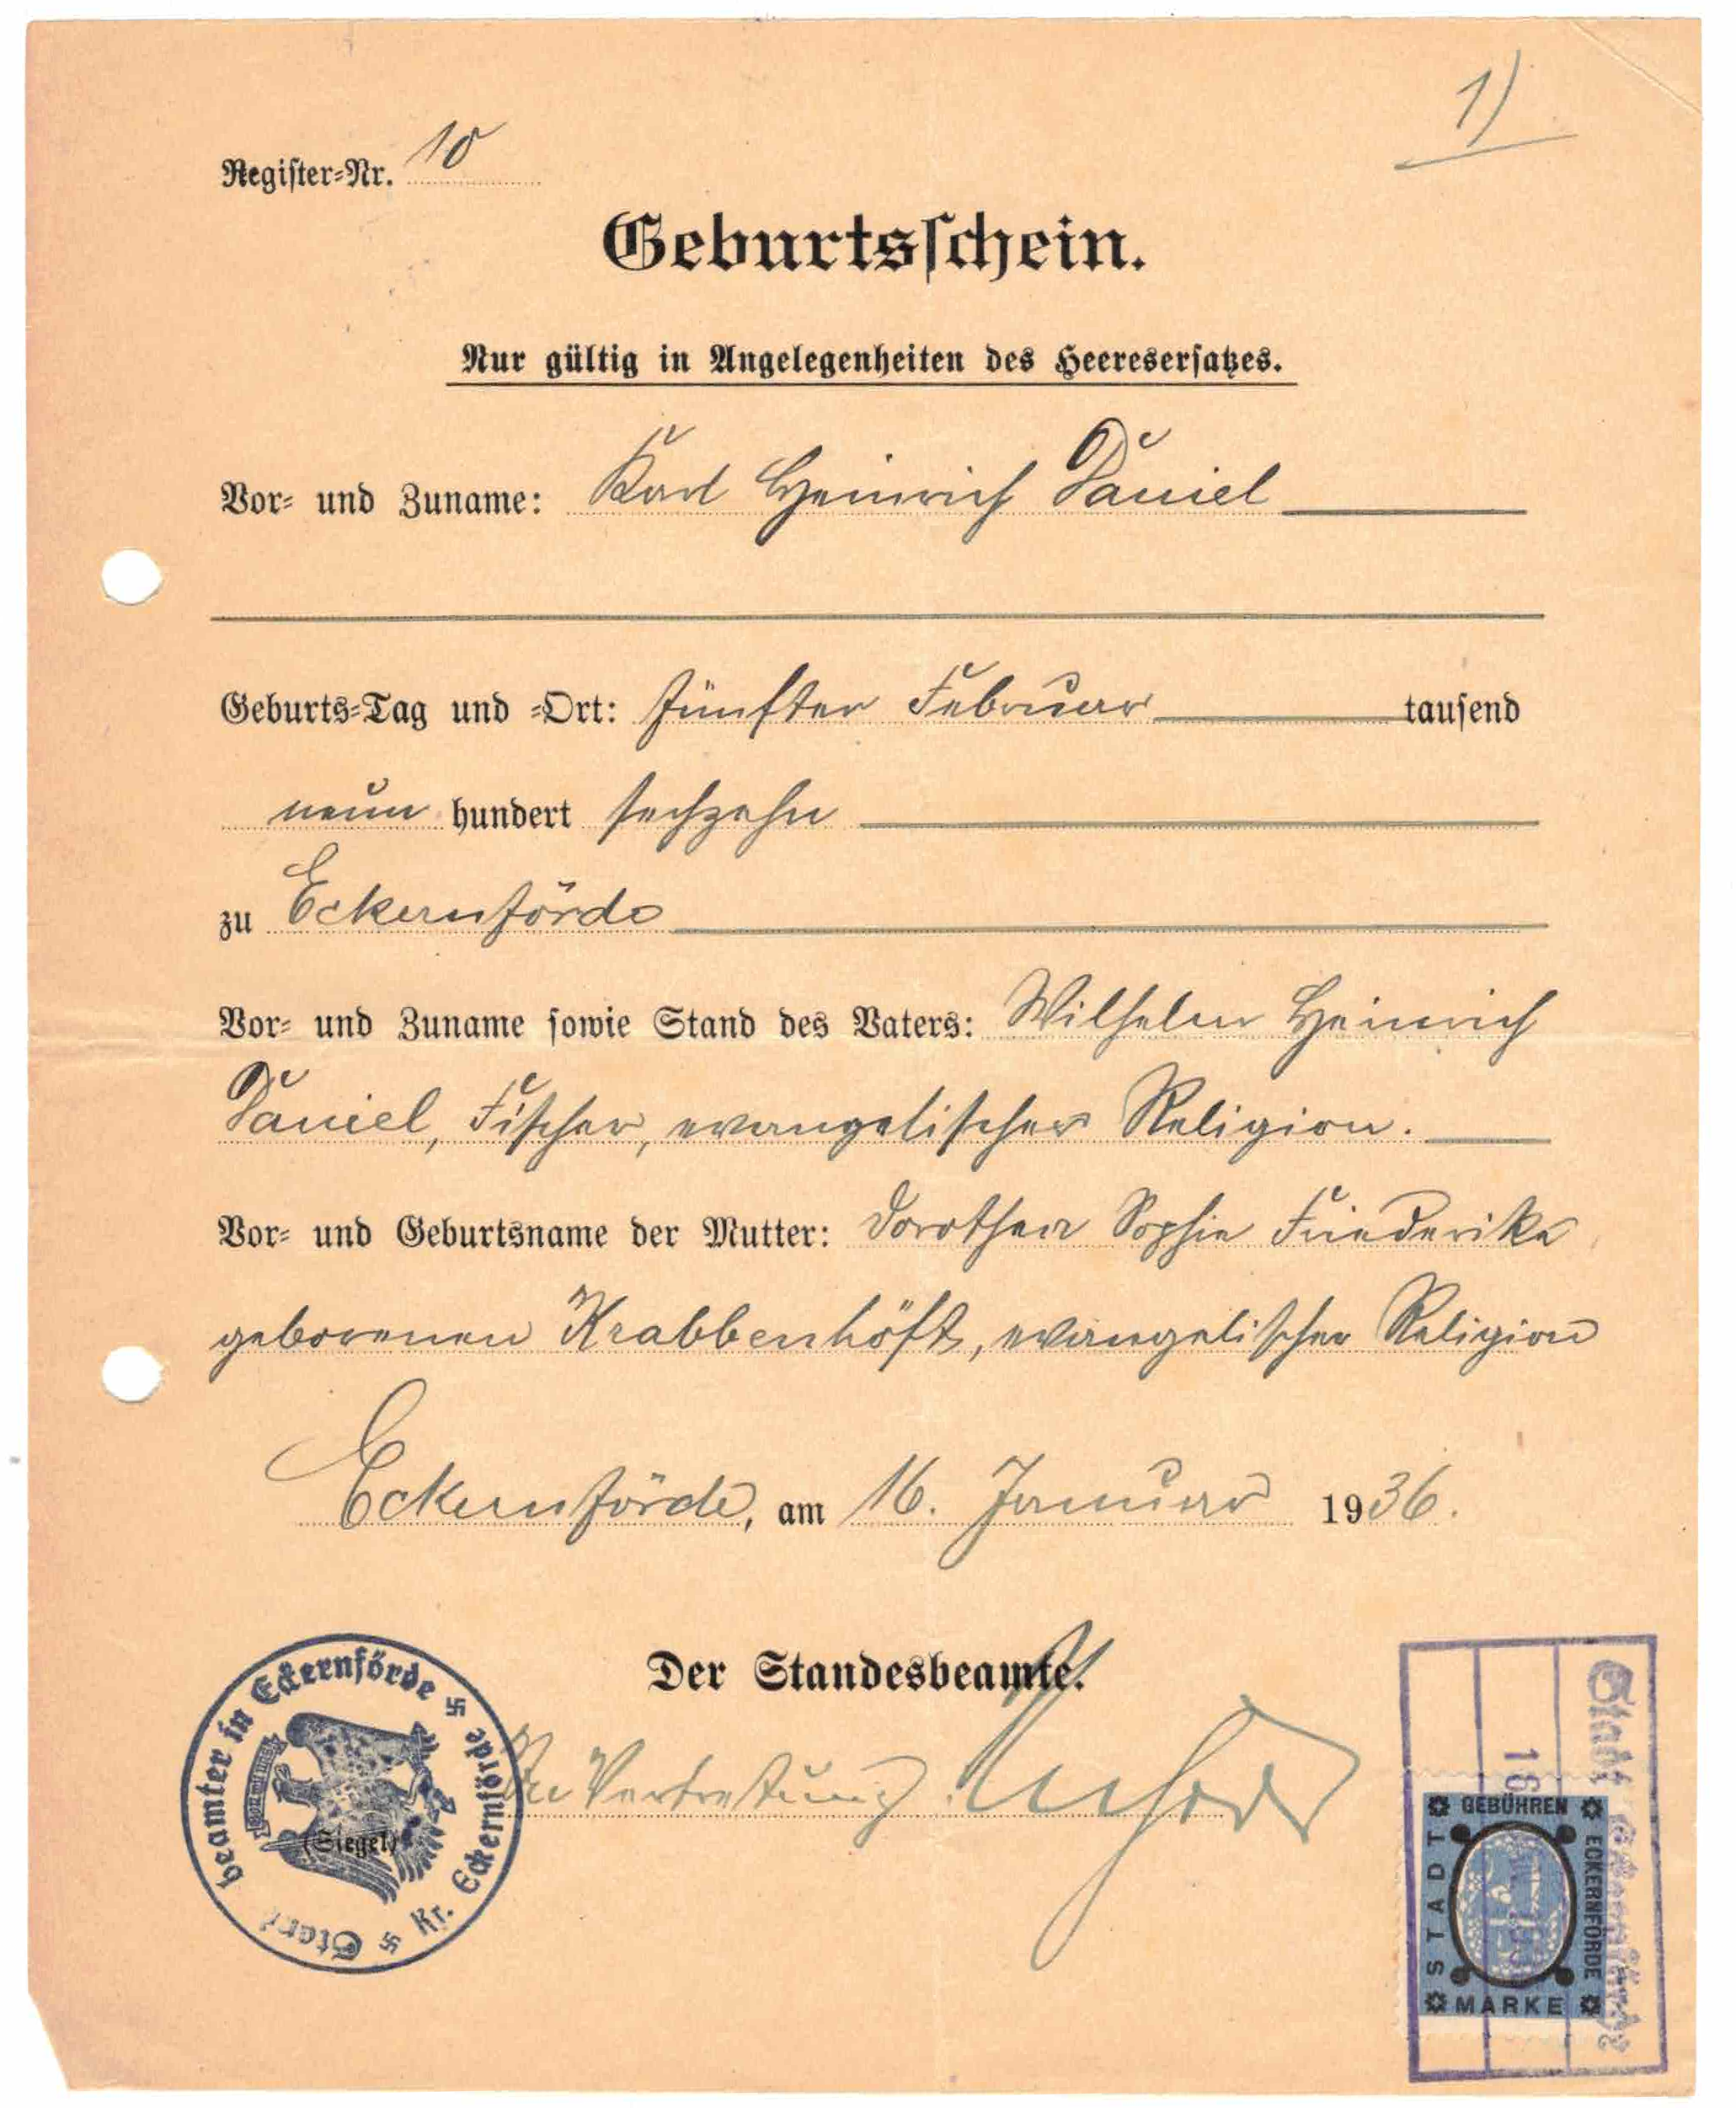 1)
Register-Nr. 10
Geburtsschein.
Nur gültig in Angelegenheiten des Heeresersatzes.
Vor- und Zuname: Karl Heinrich Daniel
Geburts-Tag und -Ort: fünfter Februar tausend
neun hundert sechzehn
zu Eckernförde
Vor- und Zuname sowie Stand des Vaters: Wilhelm Heinrich
Daniel, Fischer, evangelischer Religion.
Vor- und Geburtsname der Mutter: Dorothea Sophie Friederike
geborenen Krabbenhöft, evangelischer Religion
Eckernförde, am 16. Januar 1936.
Der Standesbeamte.
In Vertretung
Standesbeamter in Eckernförde Kr. Eckernförde
(Siegel)
Stadt Eckernförde
16
GEBÜHREN
STADT
ECKERNFÖRDE
MARKE